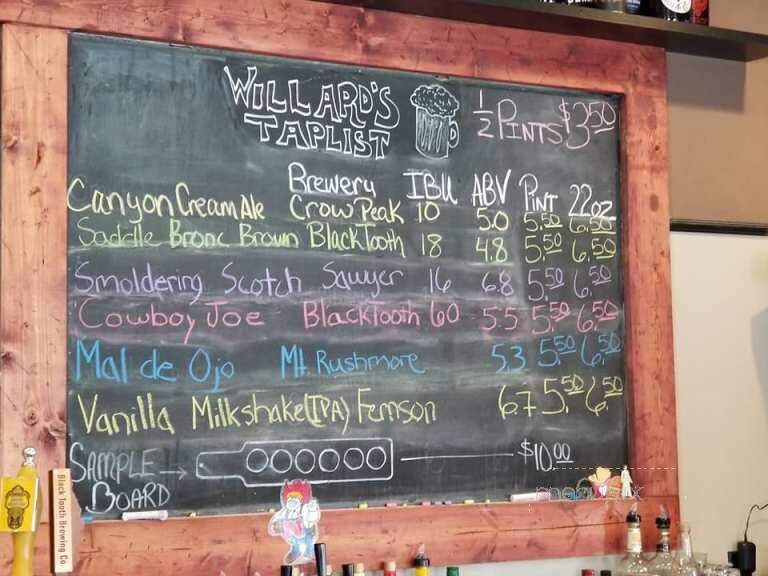 WILLARD'S ½ PINTS $3.50
TAPLIST
Brewery IBU ABV PINT 22oz
Canyon Cream Ale Crow Peak 10 5.0 5.50 6.50
Saddle Bronc Brown Black Tooth 18 4.8 5.50 6.50
Smoldering Scotch Sawyer 16 6.8 5.50 6.50
Cowboy Joe Black Tooth 60 5.5 5.50 6.50
Mal de Ojo Mt. Rushmore 5.3 5.50 6.50
Vanilla Milkshake (IPA) Fernson 6.7 5.50 6.50
SAMPLE BOARD → $10.00
Black Tooth Brewing Co